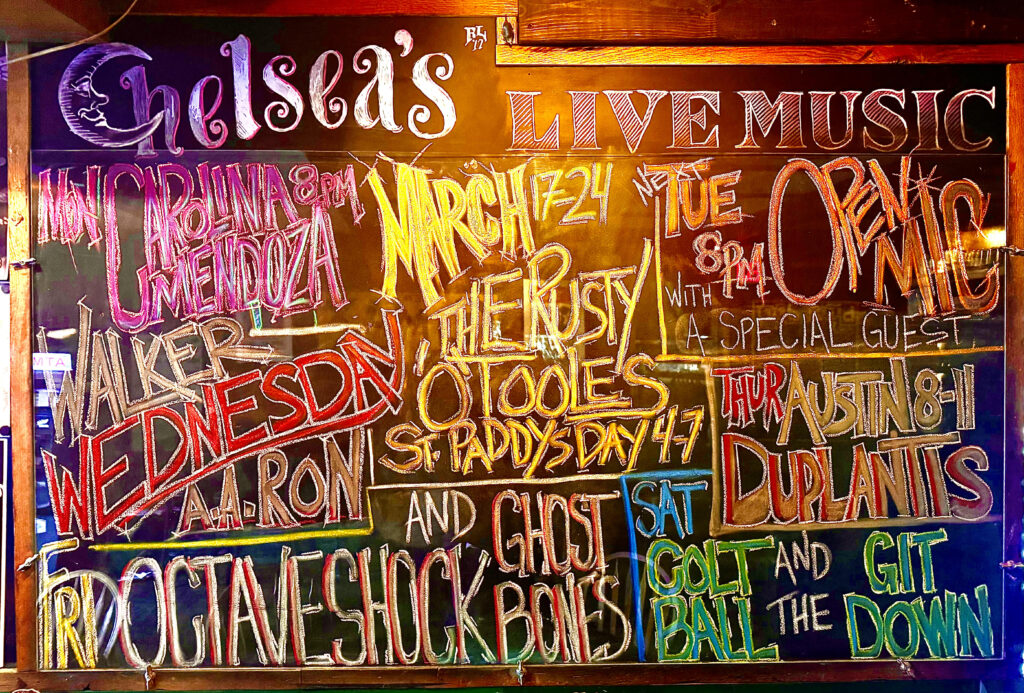 Chelsea's
RL
17
LIVE MUSIC
MON CAROLINA 8PM
MENDOZA
MARCH 17-24
THE RUSTY
O'TOOLES
ST. PADDYS DAY 4-7
NEXT TUE
8PM
OPEN MIC
WITH
A SPECIAL GUEST
WALKER
WEDNESDAY
A.A.RON
THUR AUSTIN 8-11
DUPLANTIS
FRI OCTAVE SHOCK
AND GHOST
BONES
SAT
COLT
BALL
AND
THE
GIT
DOWN
MTA